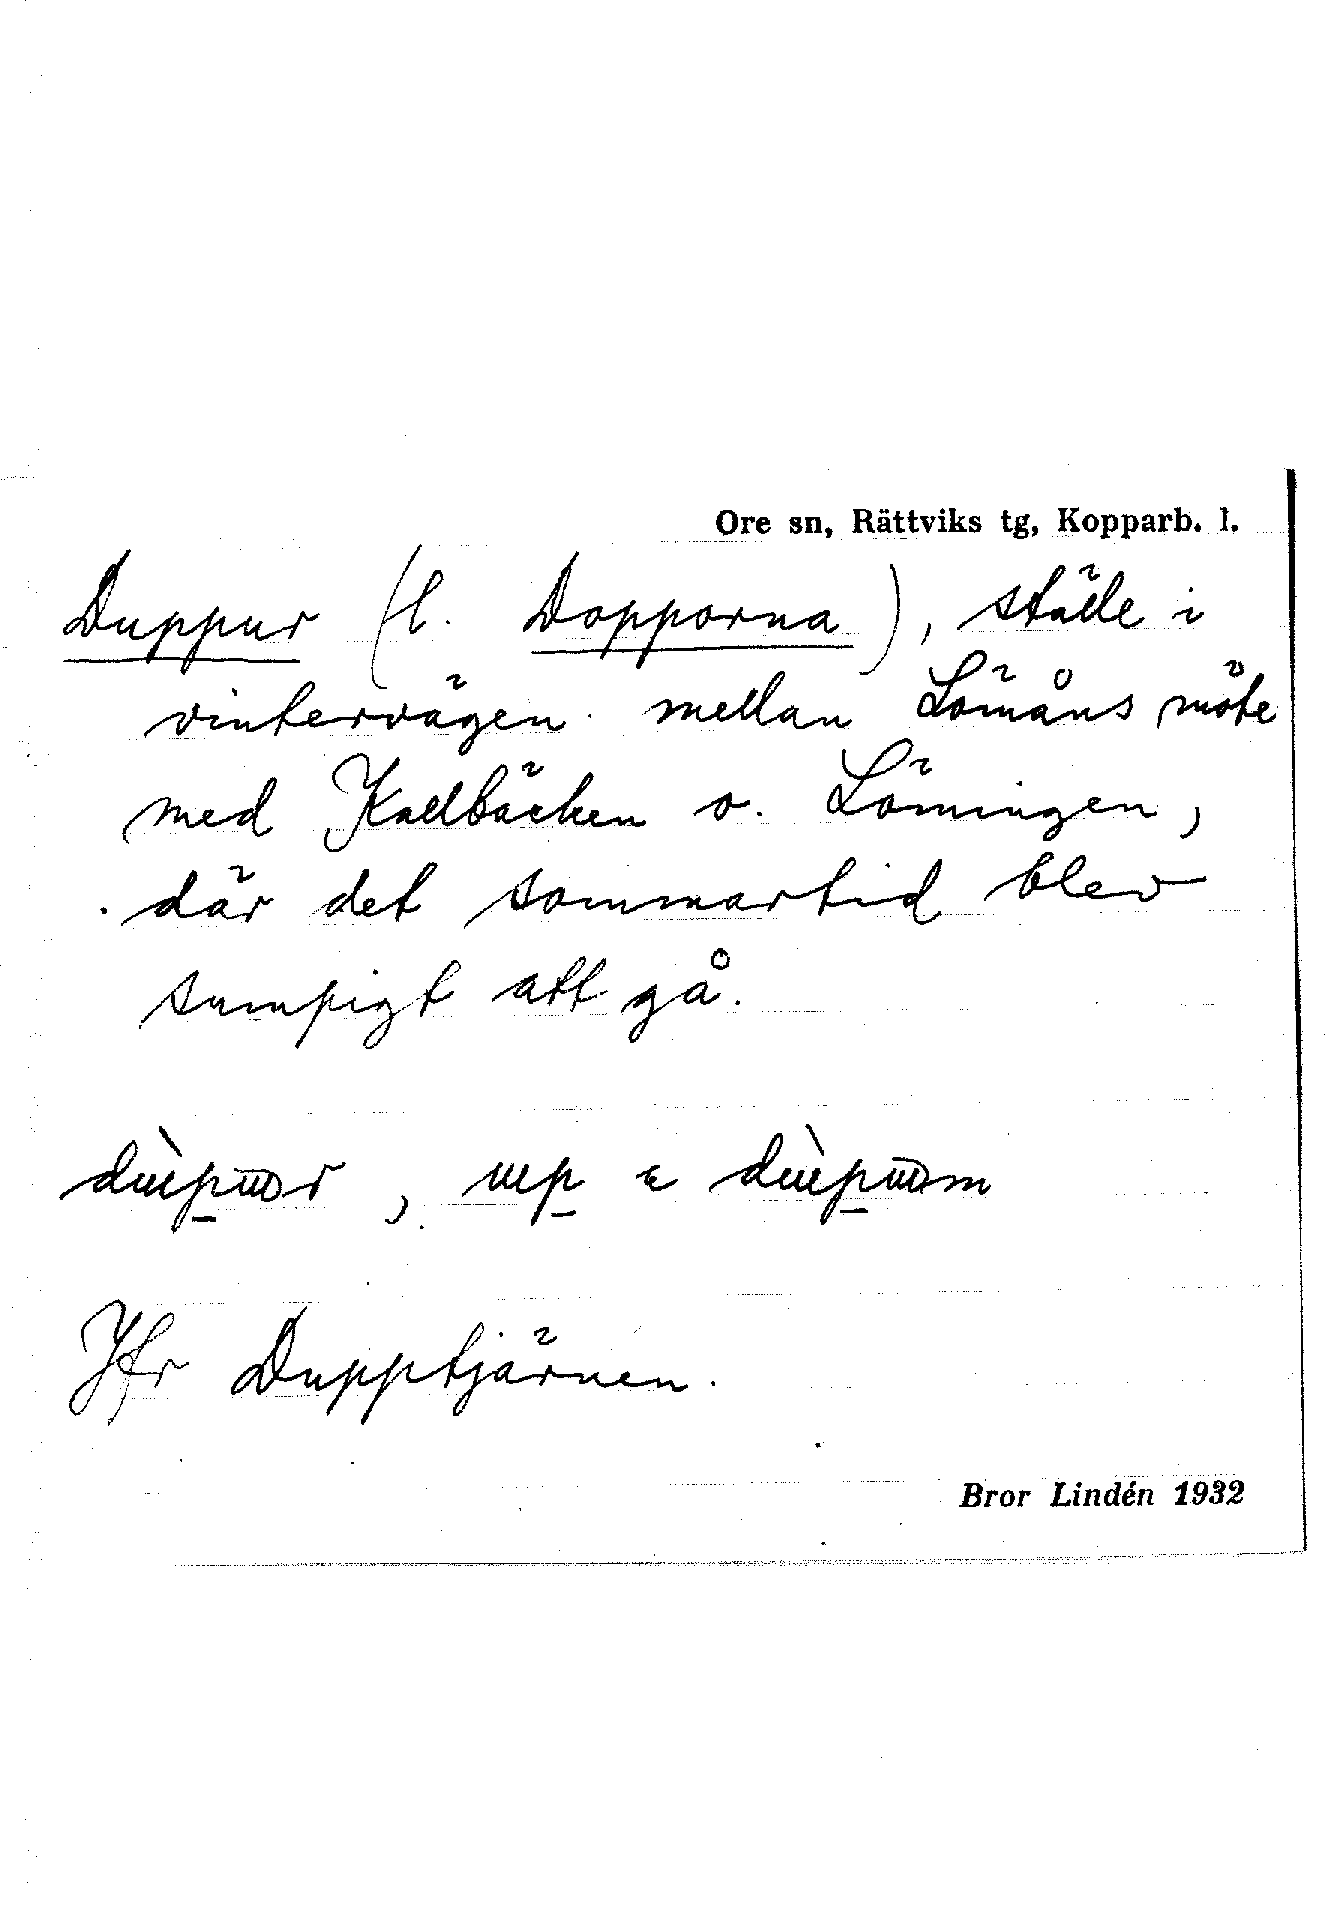 Ore sn, Rättviks tg, Kopparb. l.
Duppur (l. Dopporna), ställe i
vintervägen mellan Lömåns möte
med Kallbäcken o. Lömingen,
där det sommartid blev
sumpigt att gå.
Jfr Dupptjärnen.
Bror Lindén 1932